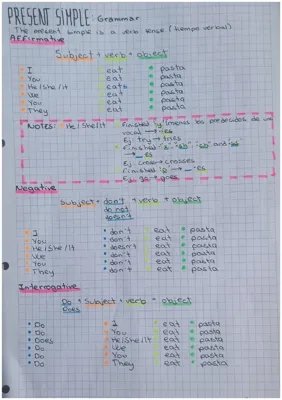 PRESENT SIMPLE: Grammar
The present simple is a verb tense (tiempo verbal)
Affirmative
Subject + verb + object
I eat pasta
You eat pasta
He/she/it eats pasta
We eat pasta
You eat pasta
They eat pasta
Notes: He/She/it Finished "y" (menos los precedidos de una
vocal → -ies
Ej: try → tries
Finished "s" "sh" "ch" and
→ -es
Ej: cross → crosses
Finished "o" → -es
Ej: go → goes
Negative
Subject + don't + verb + object
do not
doesn't
I don't eat pasta
You don't eat pasta
He/she/it doesn't eat pasta
We don't eat pasta
You don't eat pasta
They don't eat pasta
Interrogative
Do + Subject + verb + object
Does
Do I eat pasta
Do You eat pasta
Does He/she/it eat pasta
Do We eat pasta
Do You eat pasta
Do They eat pasta